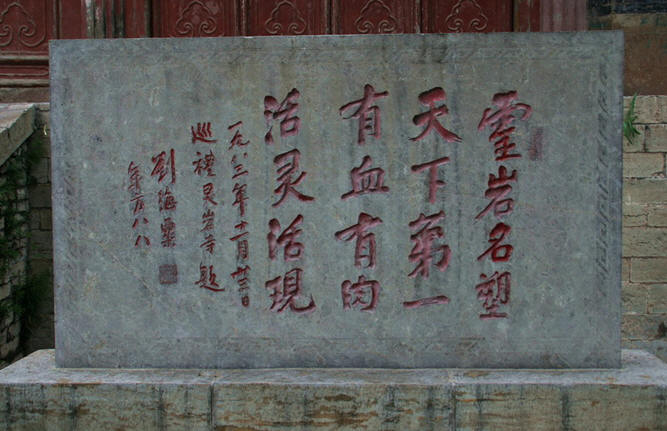 靈岩名塑
天下第一
有血有肉
活灵活現
一九八三年十一月廿三日
巡禮灵岩寺题
劉海粟
年方八八